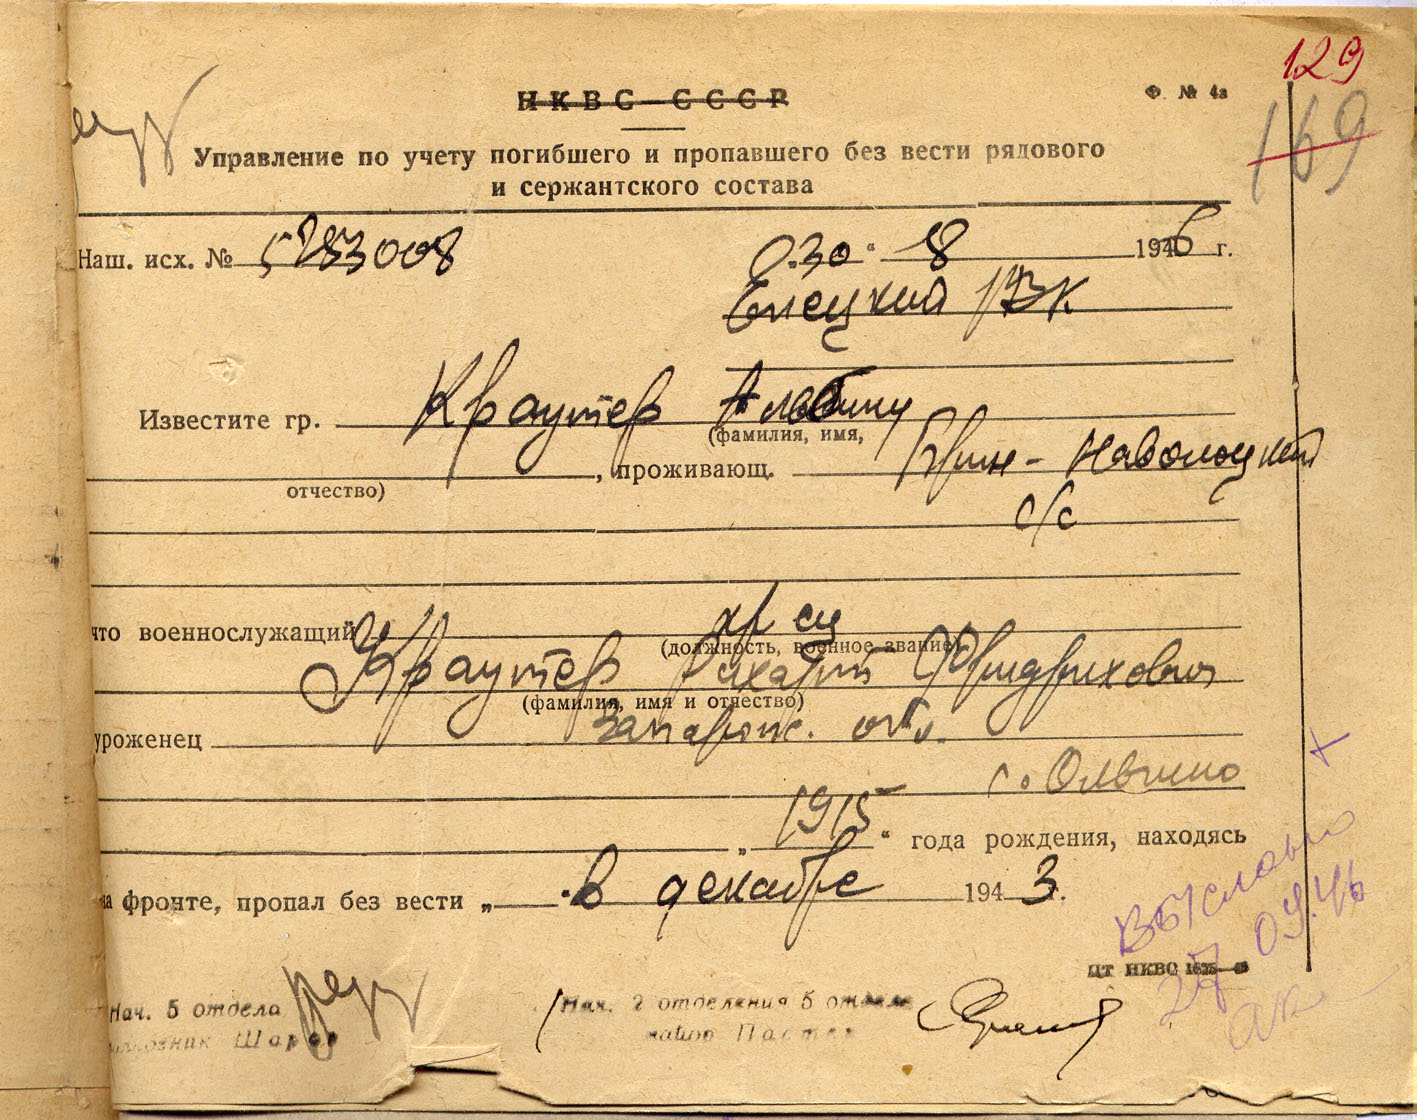 129
НКВС СССР
Ф. № 4а
169
Управление по учету погибшего и пропавшего без вести рядового
и сержантского состава
Наш. исх. № 5283008
30 " 8 1946 г.
Елецкий РВК
Известите гр. Краутер Альбину
(фамилия, имя,
отчество)
, проживающ. Наволоцкий
с/с
что военнослужащий кр-ец
(должность, военное звание)
Краутер Рихарт Фридрихович
(фамилия, имя и отчество)
уроженец Запорож. обл.
с. Ольгино
„ 1915 “ года рождения, находясь
на фронте, пропал без вести „ в декабре 1943 г.
Выслано
27 09.46
ЦТ НКВО
Нач. 5 отдела
Нач. 2 отделения 5 отдела